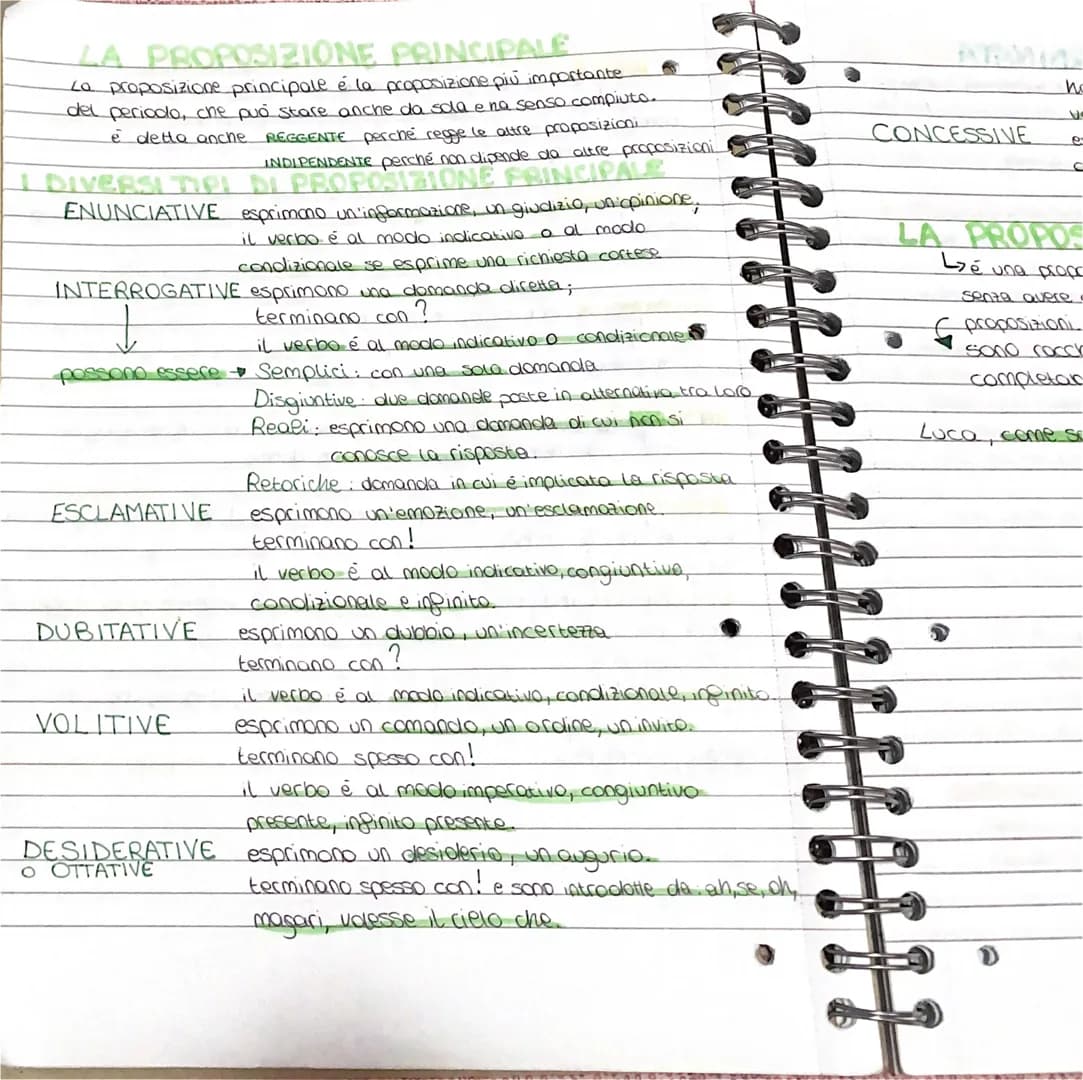 LA PROPOSIZIONE PRINCIPALE
La proposizione principale é la proposizione più importante
del periodo, che può stare anche da sola e ha senso compiuto.
é detta anche REGGENTE perché regge le altre proposizioni
INDIPENDENTE perché non dipende da altre proposizioni
I DIVERSI TIPI DI PROPOSIZIONE PRINCIPALE
ENUNCIATIVE esprimono un'informazione, un giudizio, un'opinione,
il verbo é al modo indicativo o al modo
condizionale se esprime una richiesta cortese
INTERROGATIVE esprimono una domanda diretta;
terminano con ?
il verbo é al modo indicativo o condizionale
possono essere → Semplici: con una sola domanda
Disgiuntive: due domande poste in alternativa tra loro
Reali: esprimono una domanda di cui non si
conosce la risposta.
Retoriche: domanda in cui é implicata la risposta
ESCLAMATIVE esprimono un'emozione, un'esclamazione.
terminano con!
il verbo é al modo indicativo, congiuntivo,
condizionale e infinito.
DUBITATIVE esprimono un dubbio, un'incertezza
terminano con ?
il verbo é al modo indicativo, condizionale, infinito
VOLITIVE esprimono un comando, un ordine, un invito.
terminano spesso con!
il verbo é al modo imperativo, congiuntivo
presente, infinito presente.
DESIDERATIVE esprimono un desiderio, un augurio.
O OTTATIVE
terminano spesso con! e sono introdotte da: ah, se, oh,
magari, volesse il cielo che.
CONCESSIVE
LA PROPOS
↳ é una prop
senza avere
proposizioni
sono racch
completar
Luca, come s